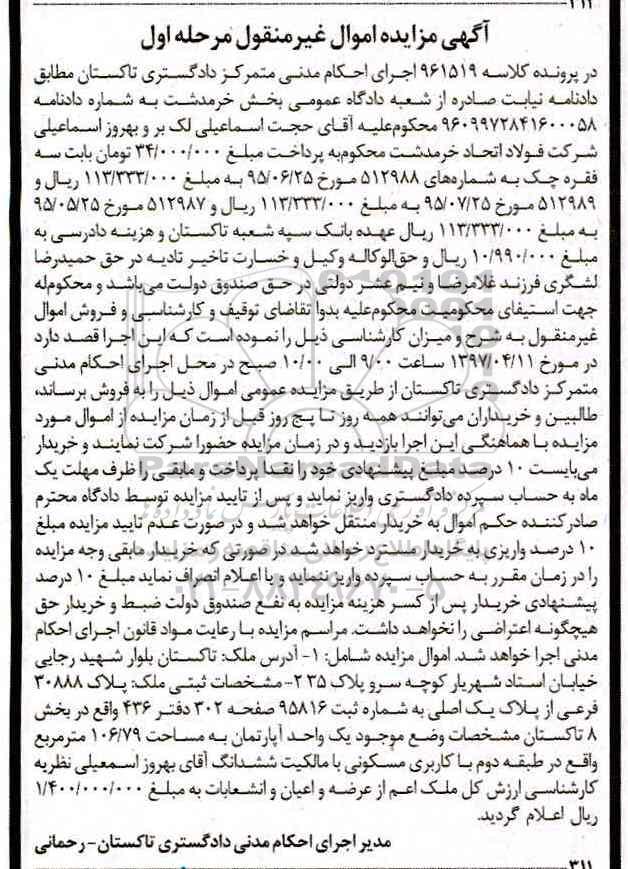 ۳۱۱
آگهی مزایده اموال غیرمنقول مرحله اول
در پرونده کلاسه ۹۶۱۵۱۹ اجرای احکام مدنی متمرکز دادگستری تاکستان مطابق
دادنامه نیابت صادره از شعبه دادگاه عمومی بخش خرمدشت به شماره دادنامه
۹۶۰۹۹۷۲۸۴۱۶۰۰۰۵۸ محکوم‌علیه آقای حجت اسماعیلی لک بر و بهروز اسماعیلی
شرکت فولاد اتحاد خرمدشت محکوم‌به پرداخت مبلغ ۳۴/۰۰۰/۰۰۰ تومان بابت سه
فقره چک به شماره‌های ۵۱۲۹۸۸ مورخ ۹۵/۰۶/۲۵ به مبلغ ۱۱۳/۳۳۳/۰۰۰ ریال و
۵۱۲۹۸۹ مورخ ۹۵/۰۷/۲۵ به مبلغ ۱۱۳/۳۳۳/۰۰۰ ریال و ۵۱۲۹۸۷ مورخ ۹۵/۰۵/۲۵
به مبلغ ۱۱۳/۳۳۳/۰۰۰ ریال عهده بانک سپه شعبه تاکستان و هزینه دادرسی به
مبلغ ۱۰/۹۹۰/۰۰۰ ریال و حق‌الوکاله وکیل و خسارت تاخیر تادیه در حق حمیدرضا
لشگری فرزند غلامرضا و نیم عشر دولتی در حق صندوق دولت می‌باشد و محکوم‌له
جهت استیفای محکومیت محکوم‌علیه بدوا تقاضای توقیف و کارشناسی و فروش اموال
غیرمنقول به شرح و میزان کارشناسی ذیل را نموده است که این اجرا قصد دارد
در مورخ ۱۳۹۷/۰۴/۱۱ ساعت ۹/۰۰ الی ۱۰/۰۰ صبح در محل اجرای احکام مدنی
متمرکز دادگستری تاکستان از طریق مزایده عمومی اموال ذیل را به فروش برساند،
طالبین و خریداران می‌توانند همه روز تا پنج روز قبل از زمان مزایده از اموال مورد
مزایده با هماهنگی این اجرا بازدید و در زمان مزایده حضورا شرکت نمایند و خریدار
می‌بایست ۱۰ درصد مبلغ پیشنهادی خود را نقدا پرداخت و مابقی را ظرف مهلت یک
ماه به حساب سپرده دادگستری واریز نماید و پس از تایید مزایده توسط دادگاه محترم
صادرکننده حکم اموال به خریدار منتقل خواهد شد و در صورت عدم تایید مزایده مبلغ
۱۰ درصد واریزی به خریدار مسترد خواهد شد در صورتی که خریدار مابقی وجه مزایده
را در زمان مقرر به حساب سپرده واریز ننماید و یا اعلام انصراف نماید مبلغ ۱۰ درصد
پیشنهادی خریدار پس از کسر هزینه مزایده به نفع صندوق دولت ضبط و خریدار حق
هیچگونه اعتراضی را نخواهد داشت. مراسم مزایده با رعایت مواد قانون اجرای احکام
مدنی اجرا خواهد شد. اموال مزایده شامل: ۱- آدرس ملک: تاکستان بلوار شهید رجایی
خیابان استاد شهریار کوچه سرو پلاک ۳۵ ۲- مشخصات ثبتی ملک: پلاک ۳۰۸۸۸
فرعی از پلاک یک اصلی به شماره ثبت ۹۵۸۱۶ صفحه ۳۰۲ دفتر ۴۳۶ واقع در بخش
۸ تاکستان مشخصات وضع موجود یک واحد آپارتمان به مساحت ۱۰۶/۷۹ مترمربع
واقع در طبقه دوم با کاربری مسکونی با مالکیت ششدانگ آقای بهروز اسمعیلی نظریه
کارشناسی ارزش کل ملک اعم از عرضه و اعیان و انشعابات به مبلغ ۱/۴۰۰/۰۰۰/۰۰۰
ریال اعلام گردید.
مدیر اجرای احکام مدنی دادگستری تاکستان - رحمانی
۳۱۱
ParsNamadData
۰۲۱-۸۸۳۴۹۶۷۰-۵